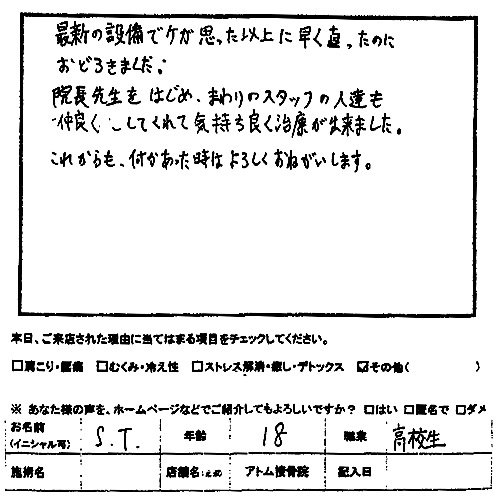 最新の設備でケガ思った以上に早く直ったのに
おどろきました。
院長先生をはじめ、まわりのスタッフの人達も
仲良くしてくれて気持ち良く治療が出来ました。
これからも、何かあった時はよろしくおねがいします。
本日、ご来店された理由に当てはまる項目をチェックしてください。
□肩こり・腰痛 □むくみ・冷え性 □ストレス解消・癒し・デトックス ☑その他( )
※ あなた様の声を、ホームページなどでご紹介してもよろしいですか? □はい □匿名で □ダメ
お名前(イニシャル可) S.T. 年齢 18 職業 高校生
施術名 店舗名: アトム接骨院 記入日